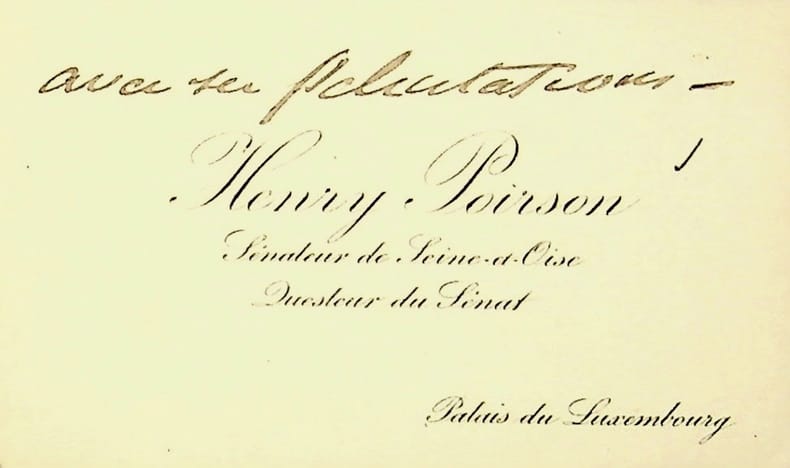 avec ses félicitations –
Henry Poirson
Sénateur de Seine-et-Oise
Questeur du Sénat
Palais du Luxembourg